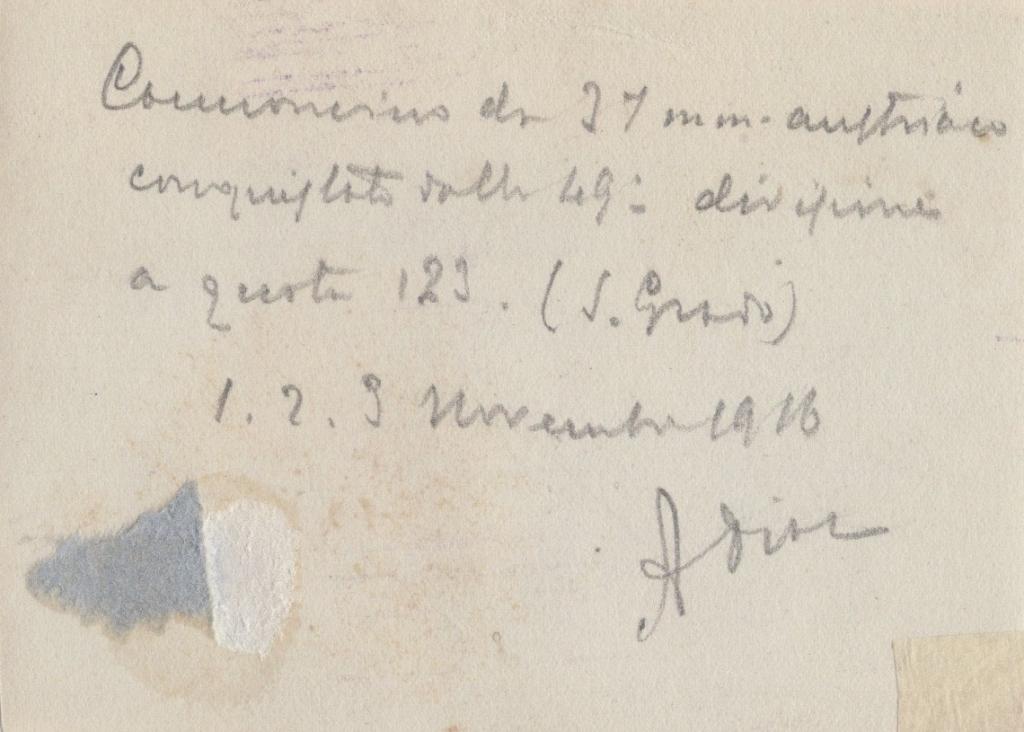 Cannoncino da 37 mm. austriaco
conquistato dalla 49ª divisione
a quota 123. (S. Grado)
1. 2. 3 Novembre 1916
A Diaz